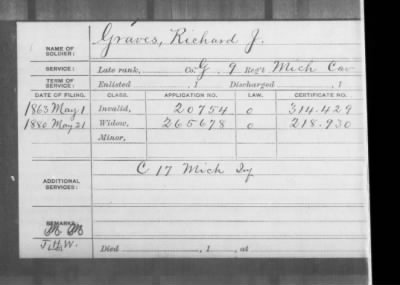 NAME OF SOLDIER: Graves, Richard J.
SERVICE: Late rank, Co. G, 9 Reg't Mich Cav
TERM OF SERVICE: Enlisted , 1 Discharged , 1
DATE OF FILING. CLASS. APPLICATION NO. LAW. CERTIFICATE NO.
1863 May 1 Invalid, 20754 o 314.429
1880 May 21 Widow, 265678 o 218.930
Minor,
ADDITIONAL SERVICES: C 17 Mich Iy
REMARKS:
Died , 1 , at